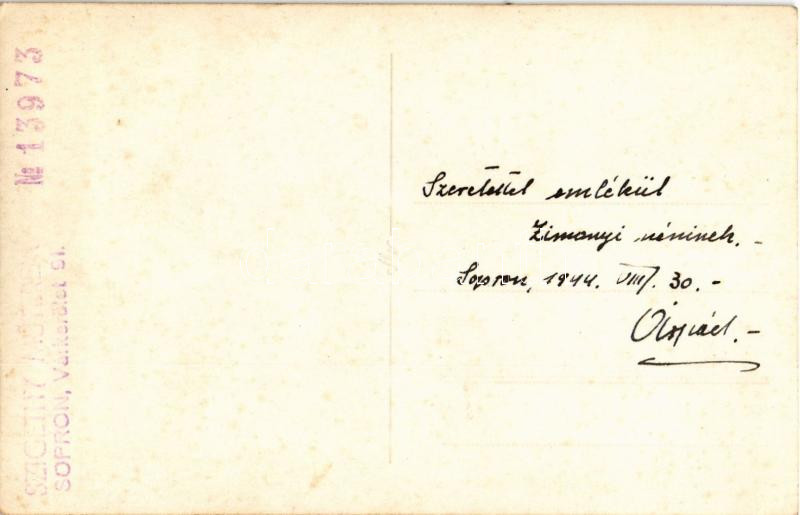 Szeretettel emlékül
Zimonyi néninek. -
Sopron, 1944. VIII/. 30. -
№ 13973
SOPRON, Várkerület 91.